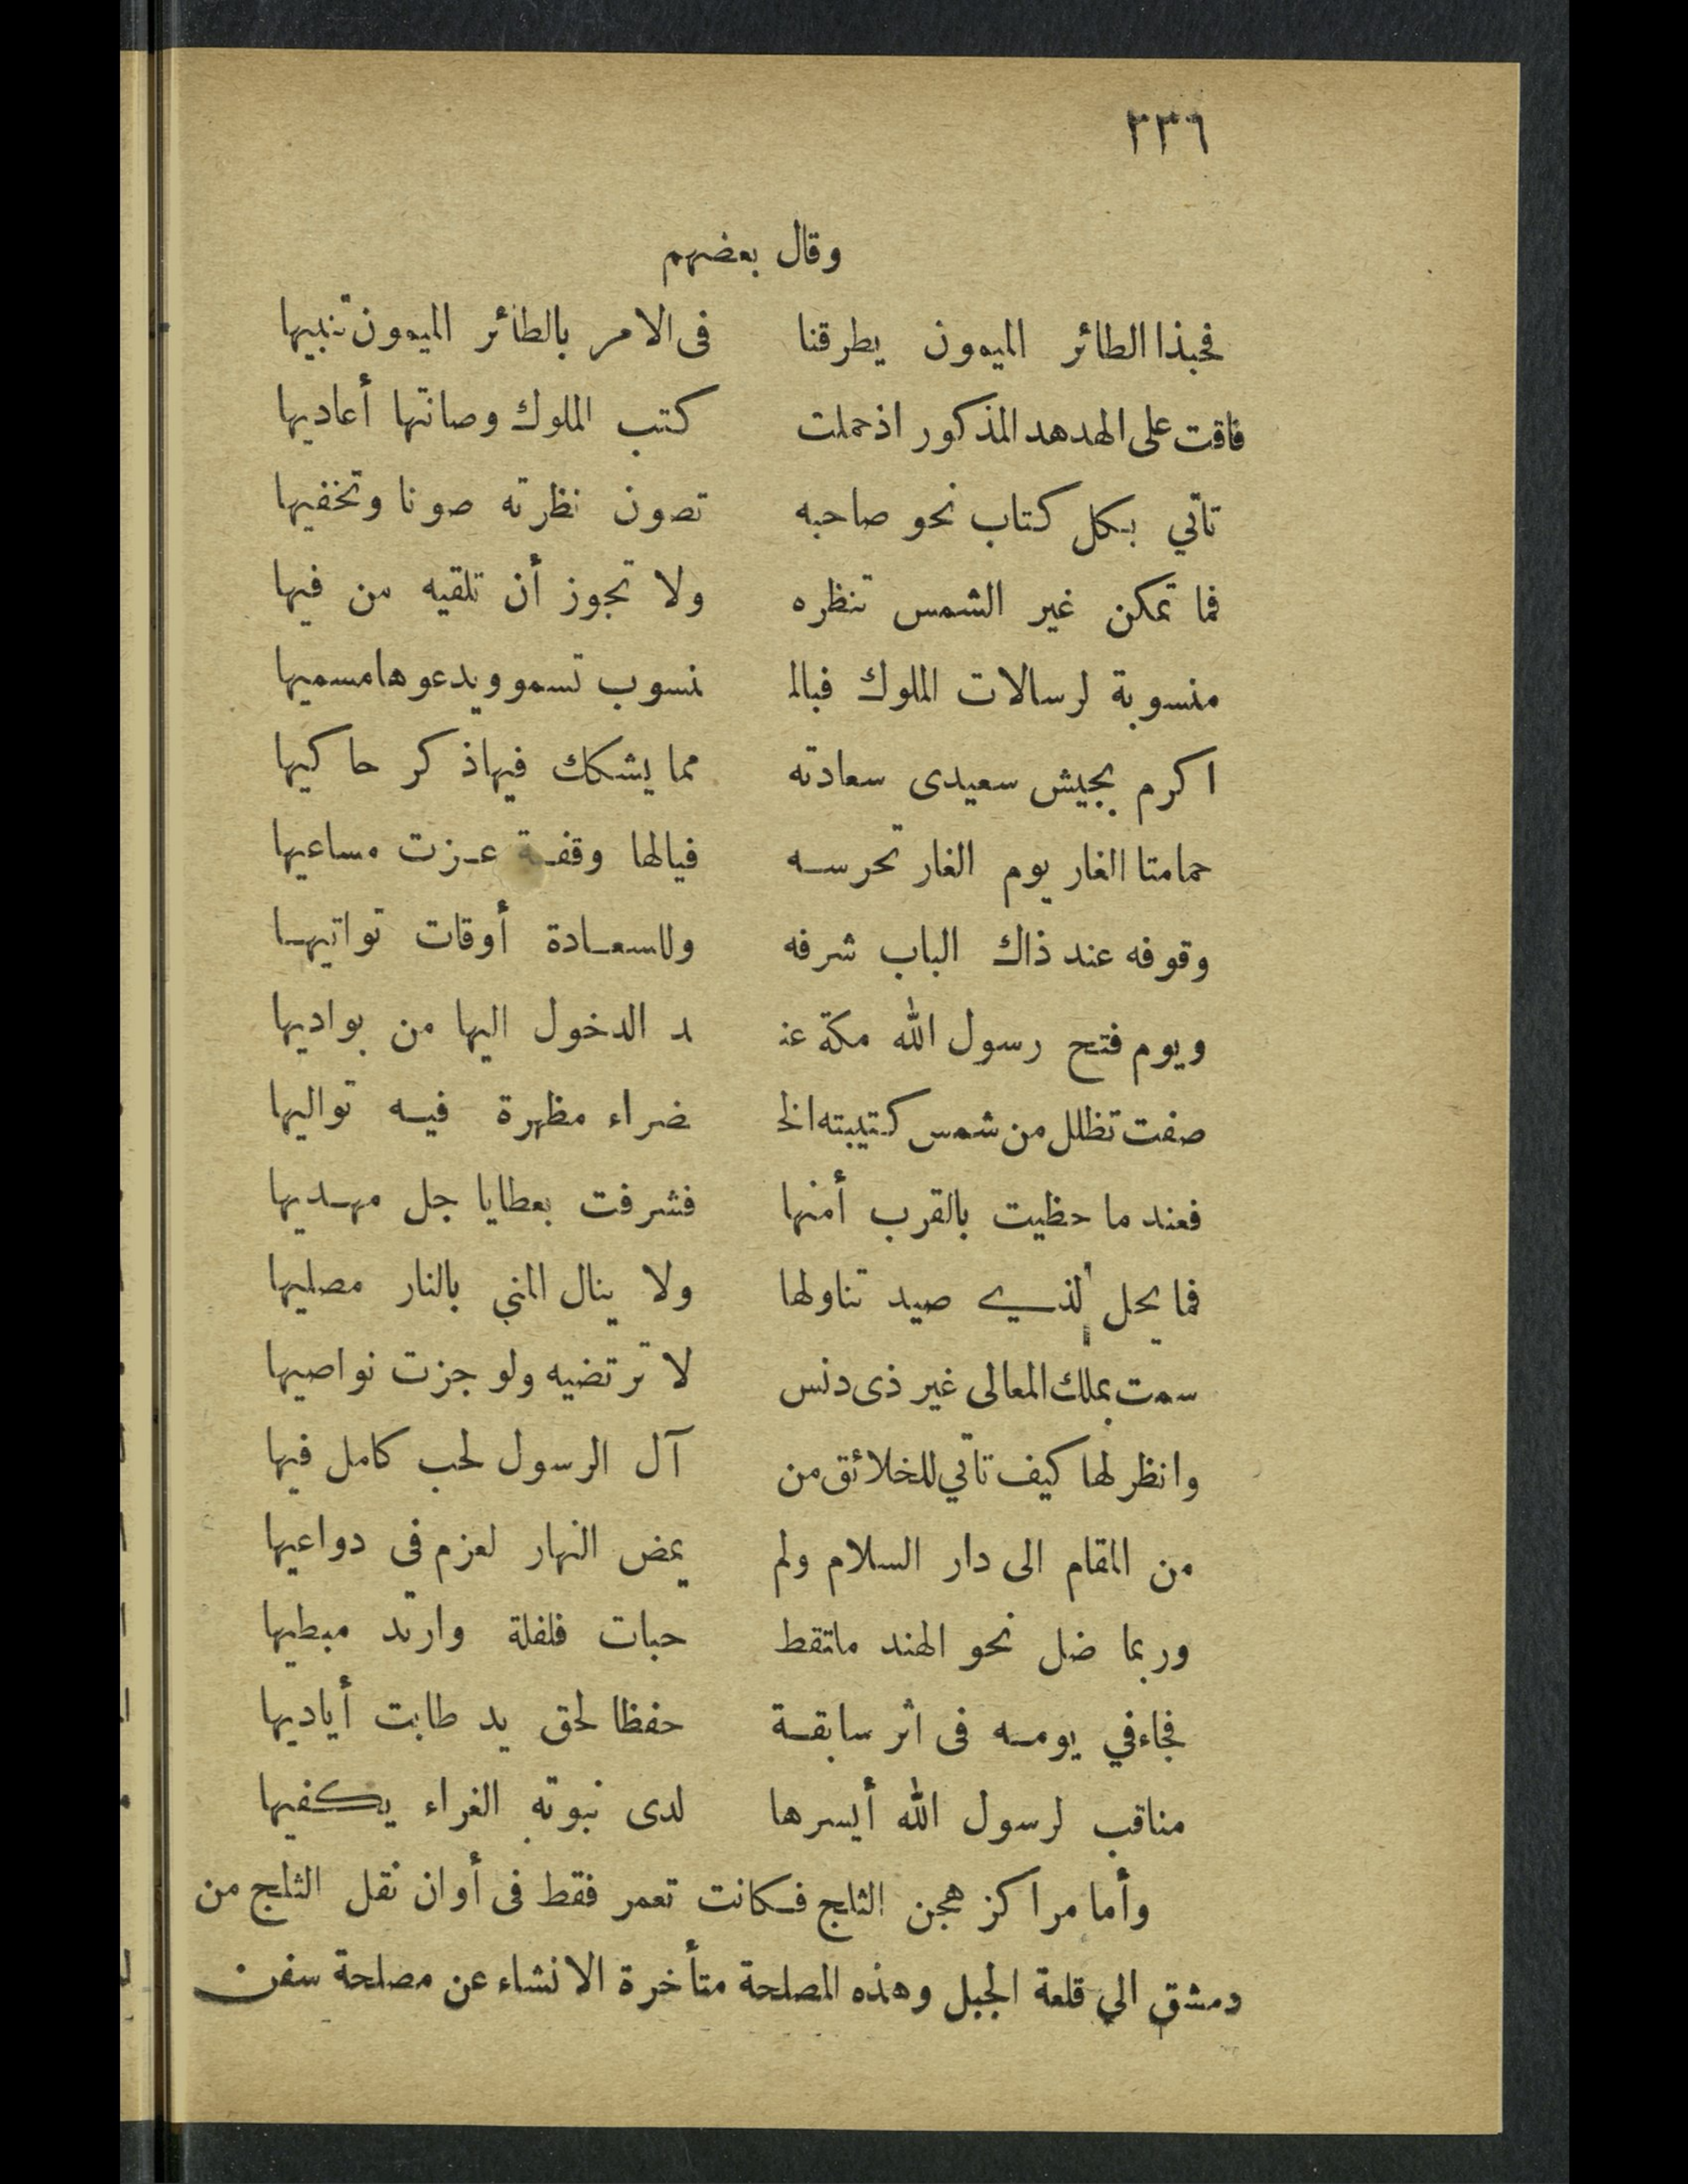 ٣٣٦
وقال بعضهم
فحبذا الطائر الميمون يطرقنا فى الامر بالطائر الميمون تنبيها
فاقت على الهدهد المذكور اذ حملت كتب الملوك وصانتها أعاديها
تاتي بكل كتاب نحو صاحبه تصون نظرته صونا وتخفيها
فما تمكن غير الشمس تنظره ولا تجوز أن تلقيه من فيها
منسوبة لرسالات الملوك فبالمـ نسوب تسمو ويدعوها مسميها
اكرم بجيش سعيدى سعادته مما يشكك فيها ذكر حاكيها
حمامتا الغار يوم الغار تحرسه فيالها وقفة عزت مساعيها
وقوفه عند ذاك الباب شرفه وللسعادة أوقات تواتيها
ويوم فتح رسول الله مكة عنـ ـد الدخول اليها من بواديها
صفت تظلل من شمس كتيبته الخـ ـضراء مظهرة فيه تواليها
فعند ما حظيت بالقرب أمنها فشرفت بعطايا جل مهديها
فما يحل لذي صيد تناولها ولا ينال المني بالنار مصليها
سمت بملك المعالى غير ذى دنس لا ترتضيه ولو جزت نواصيها
وانظر لها كيف تاتي للخلائق من آل الرسول لحب كامل فيها
من المقام الى دار السلام ولم يمض النهار لعزم فى دواعيها
وربما ضل نحو الهند ملتقط حبات فلفلة وارتد مبطيها
فجاء في يومه فى اثر سابقة حفظا لحق يد طابت أياديها
مناقب لرسول الله أيسرها لدى نبوته الغراء يكفيها
وأما مراكز هجن الثلج فكانت تعمر فقط فى أوان نقل الثلج من
دمشق الي قلعة الجبل وهذه المصلحة متأخرة الانشاء عن مصلحة سفن